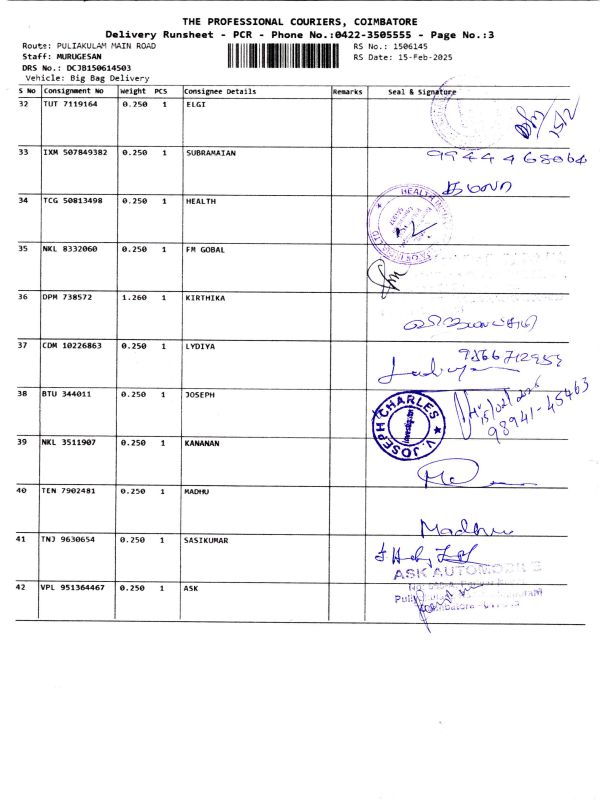 THE PROFESSIONAL COURIERS, COIMBATORE
Delivery Runsheet - PCR - Phone No.:0422-3505555 - Page No.:3
Route: PULIAKULAM MAIN ROAD RS No.: 1506145
Staff: MURUGESAN RS Date: 15-Feb-2025
DRS No.: DCJB150614503
Vehicle: Big Bag Delivery
S No Consignment No Weight PCS Consignee Details Remarks Seal & Signature
32 TUT 7119164 0.250 1 ELGI
15/2
33 IXM 507849382 0.250 1 SUBRAMAIAN
34 TCG 50813498 0.250 1 HEALTH
HEALTH
35 NKL 8332060 0.250 1 FM GOBAL
36 DPM 738572 1.260 1 KIRTHIKA
37 CDM 10226863 0.250 1 LYDIYA
38 BTU 344011 0.250 1 JOSEPH
V. JOSEPH CHARLES
Investigator
98941-45463
39 NKL 3511907 0.250 1 KANANAN
40 TEN 7902481 0.250 1 MADHU
Madhu
41 TNJ 9630654 0.250 1 SASIKUMAR
ASK
42 VPL 951364467 0.250 1 ASK